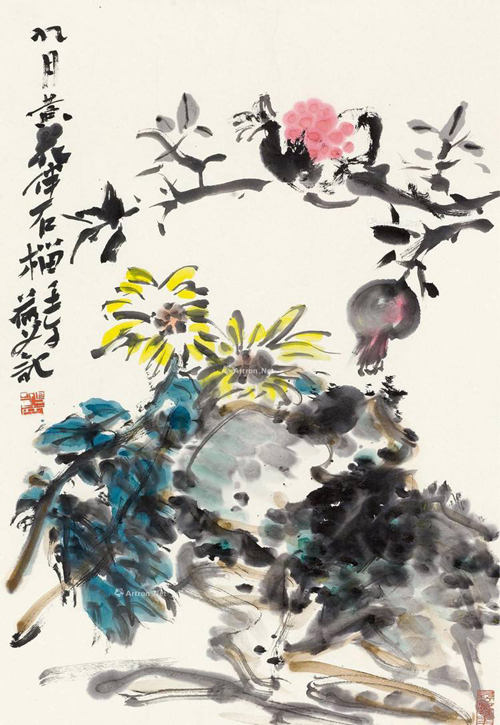 九月黄花伴石榴壬午
记
Artron.Net
Artron.Net